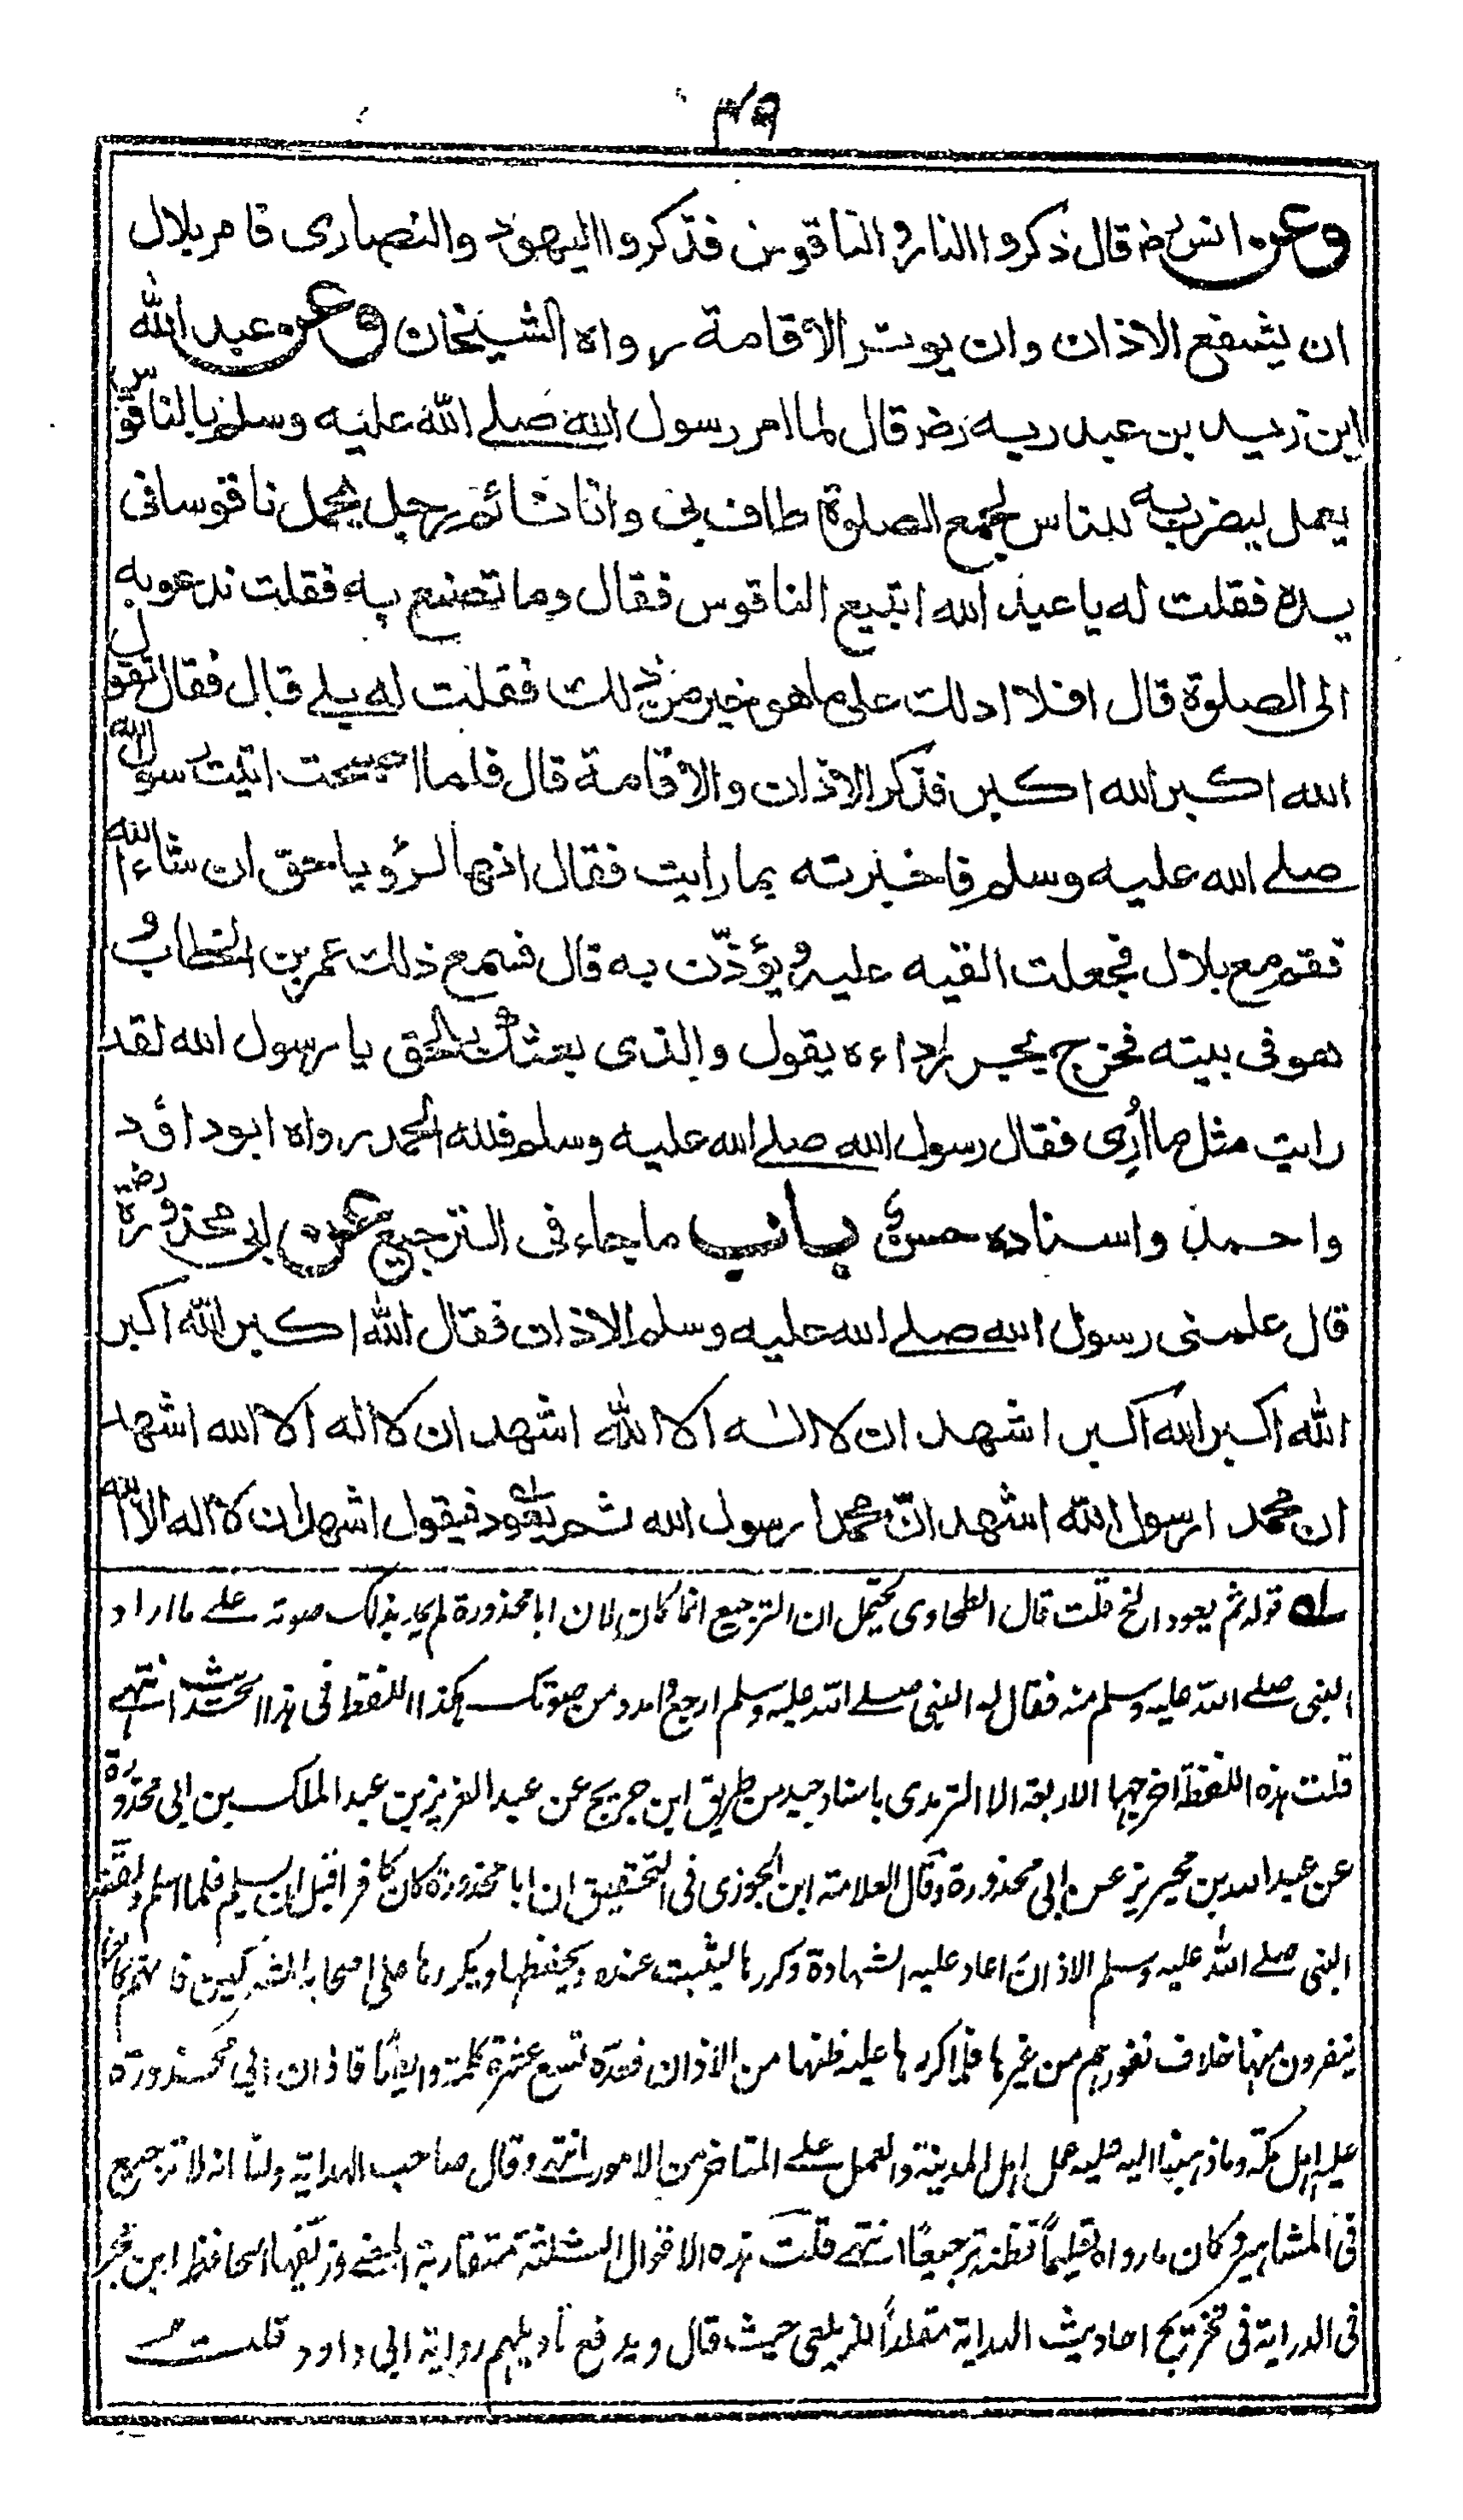 ٤٩
وعن انس رض قال ذكروا النار والناقوس فذكروا اليهود والنصارى فامر بلال
ان يشفع الاذان وان يوتر الاقامة رواه الشيخان وعن عبد الله
ابن زيد بن عبد ربه رض قال لما امر رسول الله صلى الله عليه وسلم بالناقوس
يعمل ليضرب به للناس لجمع الصلوة طاف بى وانا نائم رجل يحمل ناقوسا فى
يده فقلت له يا عبد الله اتبيع الناقوس فقال وما تصنع به فقلت ندعو به
الى الصلوة قال افلا ادلك على ما هو خير من ذلك فقلت له بلے قال فقال تقول
الله اكبر الله اكبر فذكر الاذان والاقامة قال فلما اصبحت اتيت رسول الله
صلے الله عليه وسلم فاخبرته بما رايت فقال انها لرؤيا حق ان شاء الله
فقم مع بلال فجعلت القيه عليه ويؤذّن به قال فسمع ذلك عمر بن الخطاب و
هو فى بيته فخرج يجر رداءه يقول والذى بعثك بالحق يا رسول الله لقد
رايت مثل ما اُرى فقال رسول الله صلے الله عليه وسلم فلله الحمد رواه ابو داؤد
واحمد واسناده حسن باب ما جاء فى الترجيع عن ابى محذورة رض
قال علمنى رسول الله صلے الله عليه وسلم الاذان فقال الله اكبر الله اكبر
الله اكبر الله اكبر اشهد ان لا اله الا الله اشهد ان لا اله الا الله اشهد
ان محمدا رسول الله اشهد انّ محمدا رسول الله ثم يعود فيقول اشهد ان لا اله الا الله
له قوله ثم يعود الخ قلت قال الطحاوى يحتمل ان الترجيع انما كان لان ابا محذورة لم يمد بذلك صوته علے ما اراد
النبى صلے الله عليه وسلم منه فقال له النبى صلے الله عليه وسلم ارجع وامدد من صوتك هكذا اللفظ فى هذا الحديث انتهے
قلت هذه اللفظة اخرجها الاربعة الا الترمذى باسناد جيد من طريق ابن جريج عن عبد العزيز بن عبد الملك بن ابى محذورة
عن عبد الله بن محيريز عن ابى محذورة وقال العلامة ابن الجوزى فى التحقيق ان ابا محذورة كان كافرا قبل ان يسلم فلما اسلم ولقنه
النبى صلے الله عليه وسلم الاذان اعاد عليه الشهادة وكررها ليثبت عنده ويحفظها ويكررها على اصحابه المشركين فانهم كانوا
ينفرون منها خلاف نفورهم من غيرها فلما كررها عليه ظنها من الاذان فعدّه تسع عشرة كلمة وايضًا فاذان ابى محذورة
عليه اهل مكة وما ذهبنا اليه عليه عمل اهل المدينة والعمل علے المتاخر من الامور انتهے وقال صاحب الهداية ولنا انه لا ترجيع
فى المشاهير وكان ما رواه تعليماً فظنه ترجيعاً انتهے قلت هذه الاقوال الثلثة متقاربة المعنے وزيفها الحافظ ابن حجر
فى الدراية فى تخريج احاديث الهداية مقلداً للزيلعى حيث قال ويدفع تاويلهم رواية ابى داود قلت